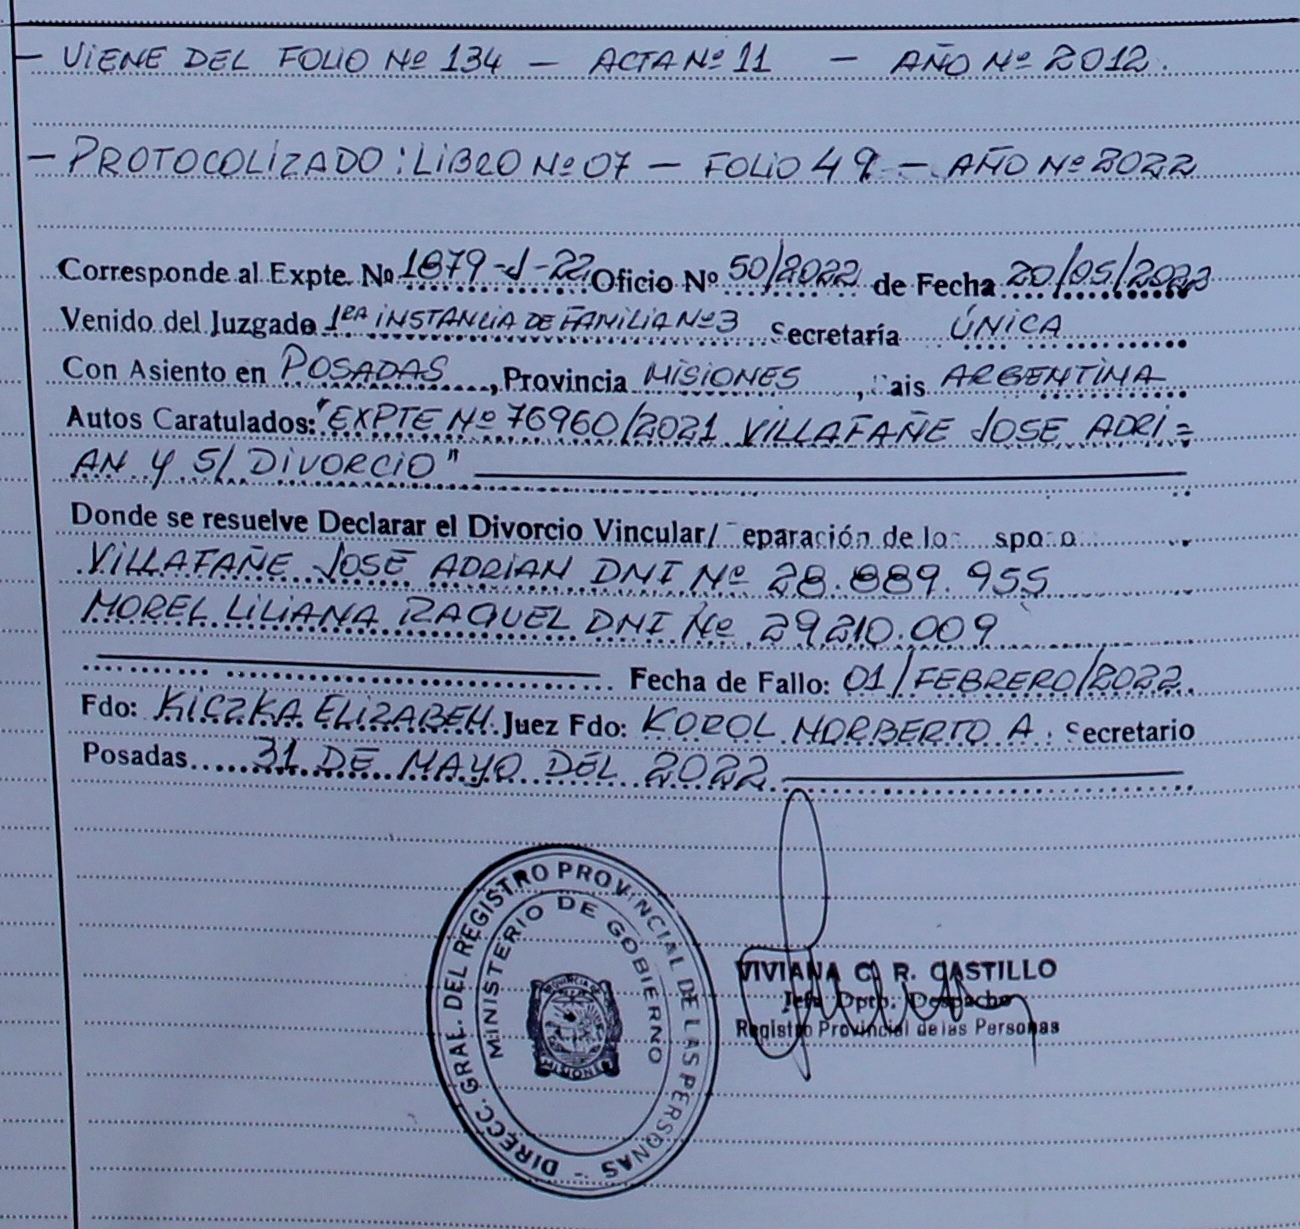 - VIENE DEL FOLIO Nº 134 - ACTA Nº 11 - AÑO Nº 2012.
- PROTOCOLIZADO: LIBRO Nº 07 - FOLIO 49 - AÑO Nº 2022
Corresponde al Expte. Nº 1879-J-22 Oficio Nº 50/2022 de Fecha 20/05/2022
Venido del Juzgado 1ERA INSTANCIA DE FAMILIA Nº 3 Secretaría ÚNICA
Con Asiento en POSADAS, Provincia MISIONES, ais ARGENTINA
Autos Caratulados: "EXPTE Nº 76960/2021 VILLAFAÑE JOSE ADRI=
AN Y S/ DIVORCIO"
Donde se resuelve Declarar el Divorcio Vincular/ eparación de lo spo o
VILLAFAÑE JOSÉ ADRIAN DNI Nº 28.889.955
MOREL LILIANA RAQUEL DNI Nº 29210.009
Fecha de Fallo: 01/FEBRERO/2022.
Fdo: KICZKA ELIZABEH. Juez Fdo: KOROL NORBERTO A. Secretario
Posadas 31 DE MAYO DEL 2022
DIRECC. GRAL. DEL REGISTRO PROVINCIAL DE LAS PERSONAS -
MINISTERIO DE GOBIERNO
PROVINCIA DE
MISIONES
VIVIANA C. R. CASTILLO
Jefa Dpto. Despacho
Registro Provincial de las Personas